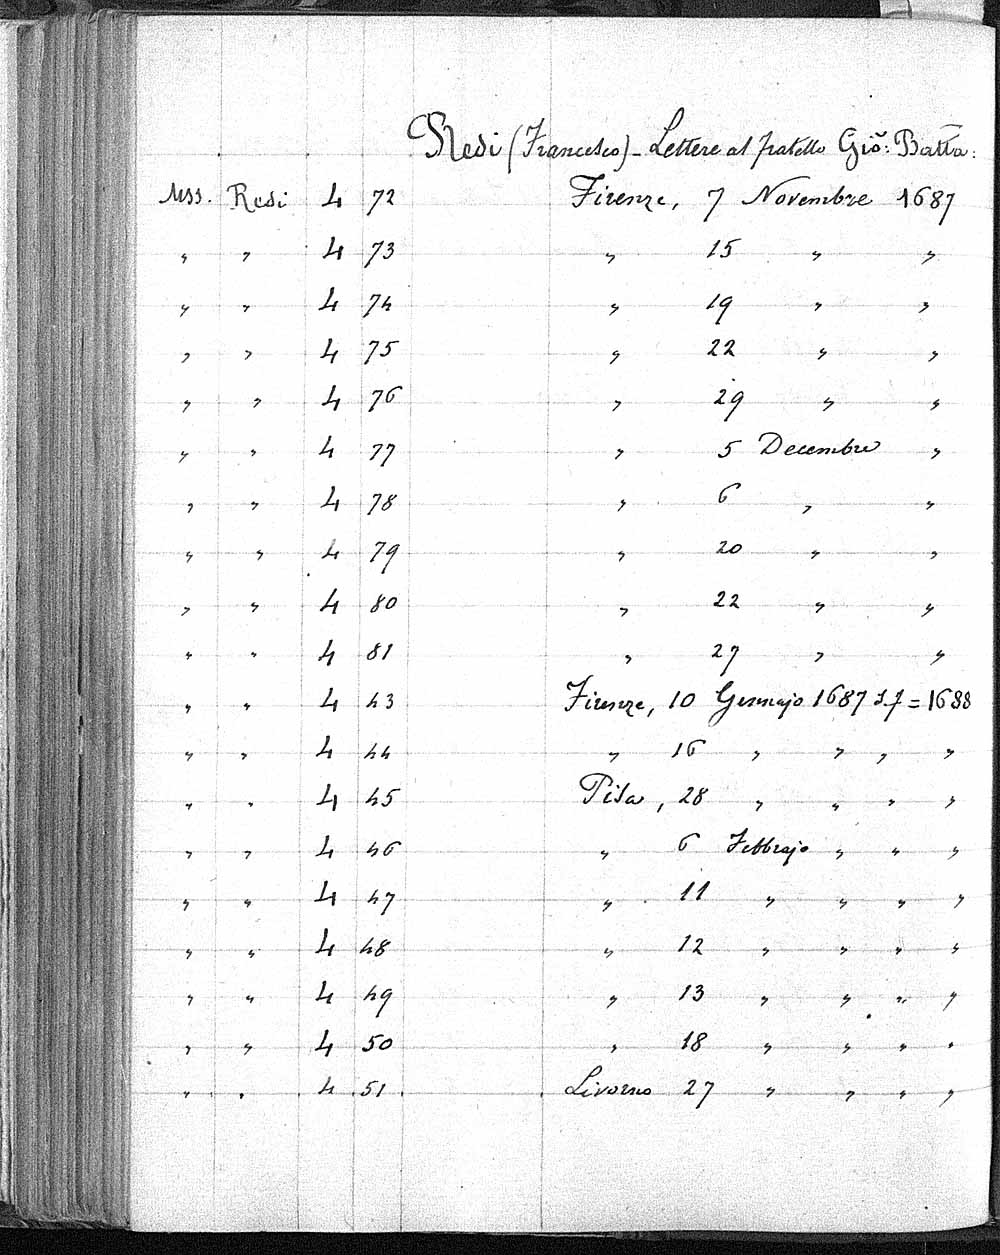 Redi (Francesco) - Lettere al fratello Gio: Batta:
Mss. Redi 4 72 Firenze, 7 Novembre 1687
" " 4 73 " 15 " "
" " 4 74 " 19 " "
" " 4 75 " 22 " "
" " 4 76 " 29 " "
" " 4 77 " 5 Decembre "
" " 4 78 " 6 " "
" " 4 79 " 20 " "
" " 4 80 " 22 " "
" " 4 81 " 27 " "
" " 4 43 Firenze, 10 Gennajo 1687 s.f = 1688
" " 4 44 " 16 " " " "
" " 4 45 Pisa, 28 " " " "
" " 4 46 " 6 Febbrajo " " "
" " 4 47 " 11 " " " "
" " 4 48 " 12 " " " "
" " 4 49 " 13 " " " "
" " 4 50 " 18 " " " "
" " 4 51 Livorno 27 " " " "